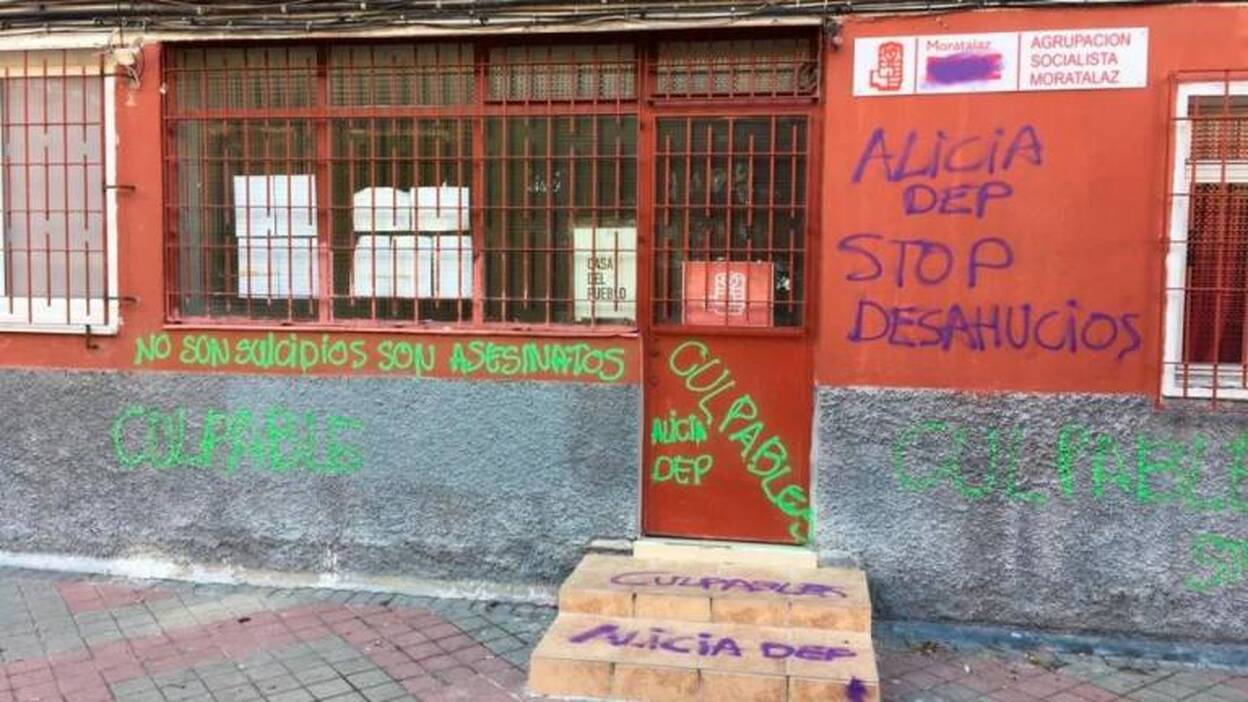 Moratalaz
AGRUPACION
SOCIALISTA
MORATALAZ
ALICIA
DEP
STOP
DESAHUCIOS
CASA
DEL
PUEBLO
NO SON SUICIDIOS SON ASESINATOS
CULPABLE
CULPABLES
ALICIA
DEP
CULPABLE
CULPABLES
ALICIA DEP